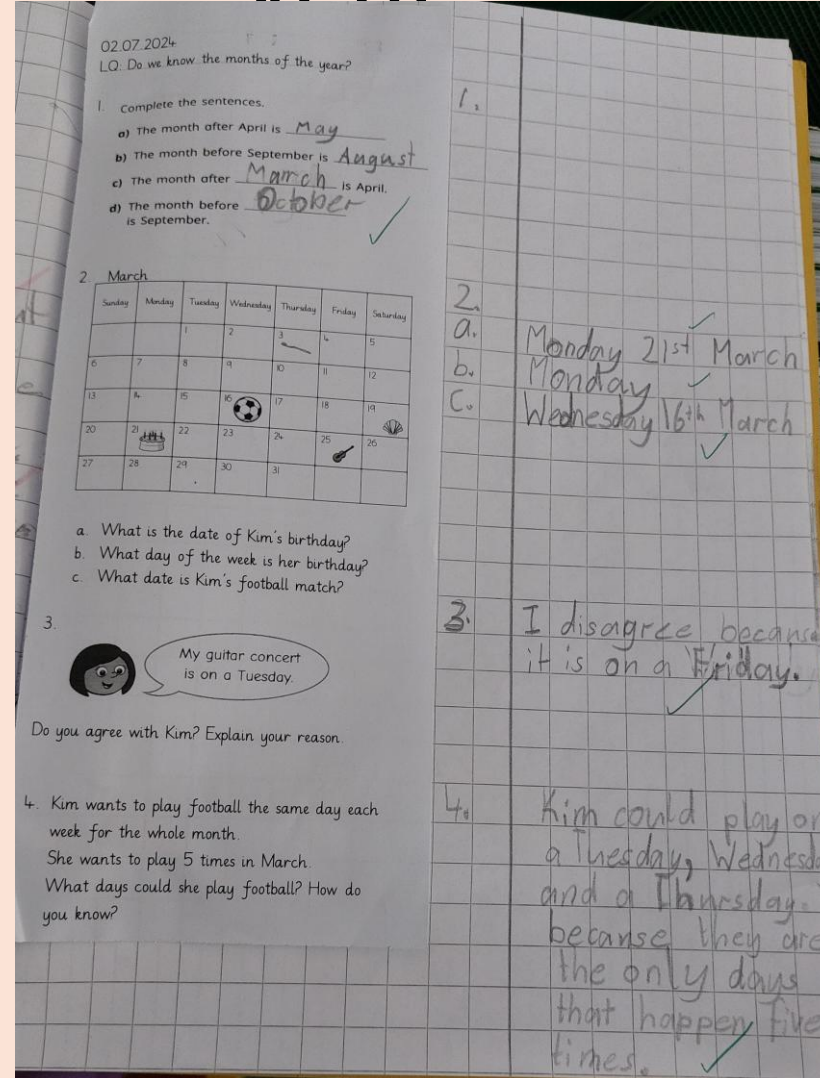 02.07.2024
LQ: Do we know the months of the year?
1. Complete the sentences.
a) The month after April is May
b) The month before September is August
c) The month after March is April.
d) The month before October
is September.
2. March
Sunday Monday Tuesday Wednesday Thursday Friday Saturday
1 2 3 4 5
6 7 8 9 10 11 12
13 14 15 16 17 18 19
20 21 22 23 24 25 26
27 28 29 30 31
a. What is the date of Kim's birthday?
b. What day of the week is her birthday?
c. What date is Kim's football match?
3.
My guitar concert
is on a Tuesday.
Do you agree with Kim? Explain your reason.
4. Kim wants to play football the same day each
week for the whole month.
She wants to play 5 times in March.
What days could she play football? How do
you know?
1.
2.
a. Monday 21st March
b. Monday
c. Wednesday 16th March
3. I disagree because
it is on a Friday.
4. Kim could play on
a Tuesday, Wednesd
and a Thursday.
because they are
the only days
that happen five
times.